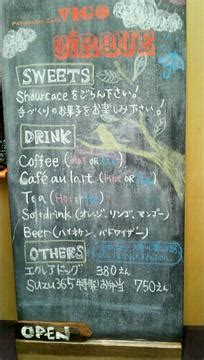 PATISSERIE CAFE VIGO
CIRCUS
SWEETS
Showcaceをごらん下さい。
手づくりのお菓子をお楽しみ下さい!
DRINK
Coffee (HOT OR ICE)
Café au lait (HOT OR ICE)
Tea (HOT OR ICE)
Softdrink (オレンジ、リンゴ、マンゴー)
Beer (ハイネケン、バドワイザー)
OTHERS
エクレアドッグ 380えん
Suzu365特製お弁当 750えん
OPEN